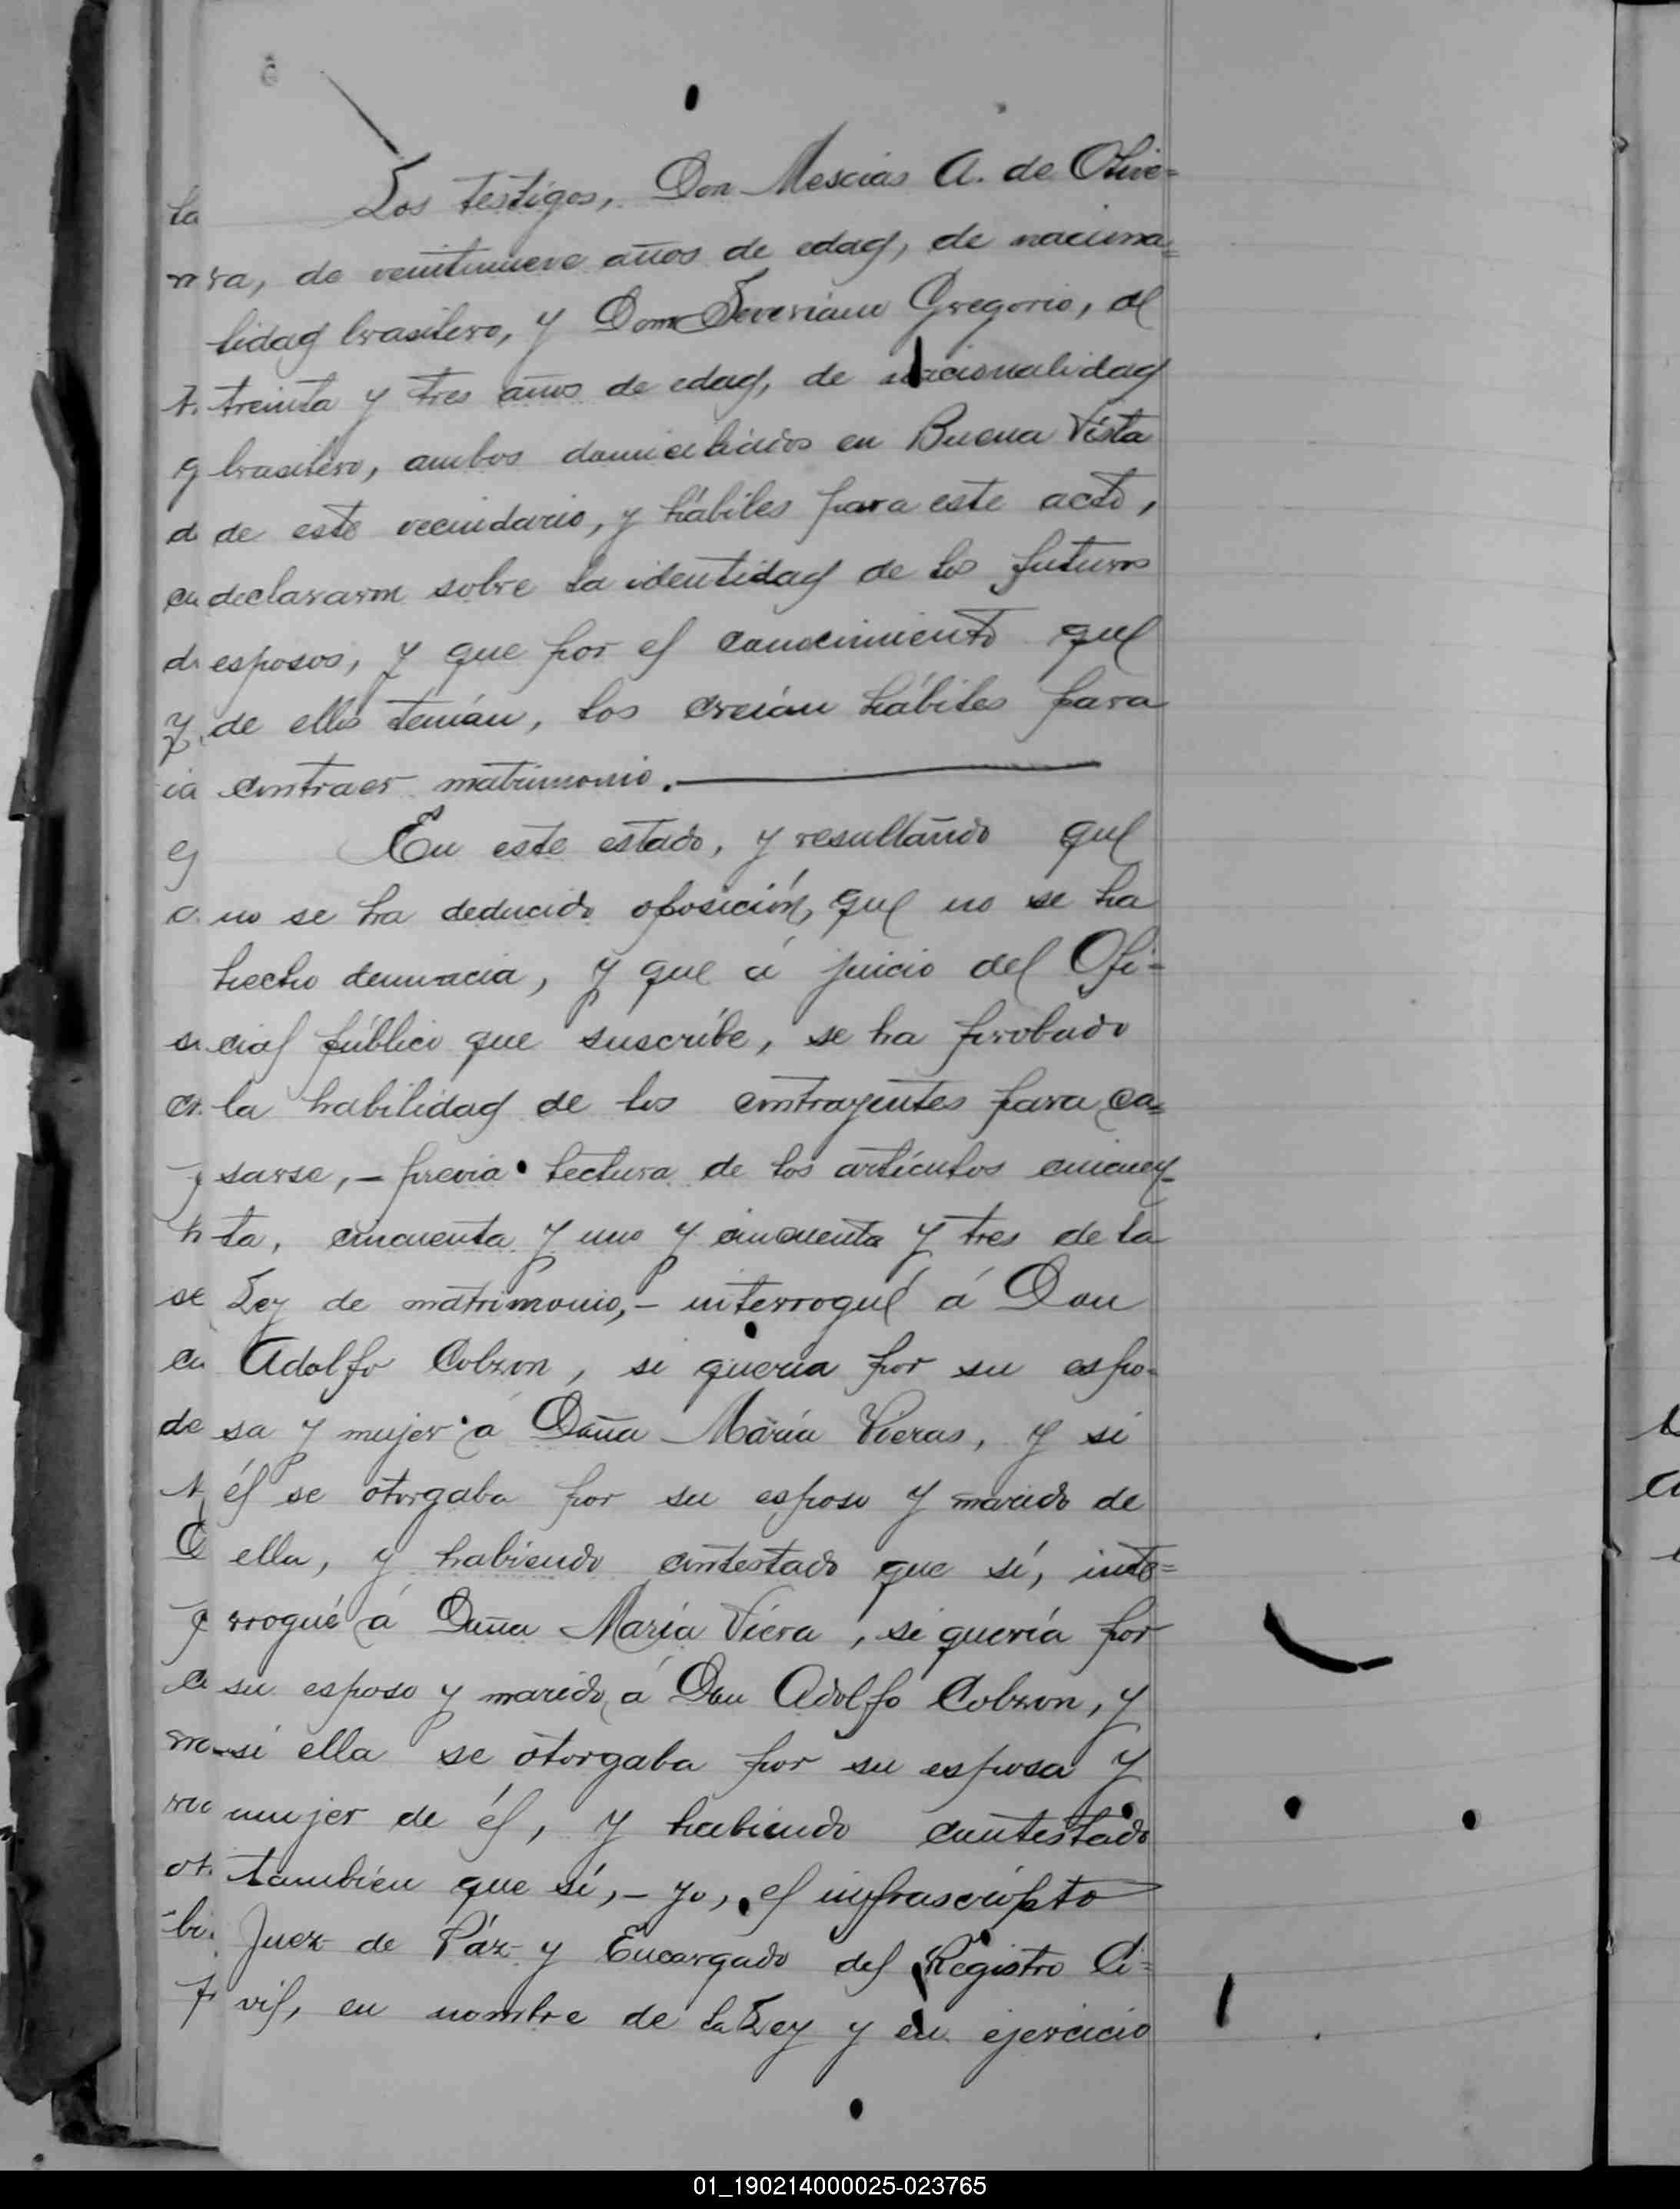 Los testigos, Don Mescias A. de Olive=
ra, de veintinueve años de edad, de naciona=
lidad brasilero, y Don Severiano Gregorio, de
treinta y tres años de edad, de nacionalidad
brasilero, ambos domiciliados en Buena Vista
de este vecindario, y hábiles para este acto,
declararon sobre la identidad de los futuros
esposos, y que por el conocimiento que
de ellos tenían, los creían hábiles para
contraer matrimonio.
En este estado, y resultando que
no se ha deducido oposición, que no se ha
hecho denuncia, y que á juicio del Ofi-
cial público que suscribe, se ha probado
la habilidad de los contrayentes para ca=
sarse, - previa lectura de los artículos cincuen-
ta, cincuenta y uno y cincuenta y tres de la
Ley de matrimonio, - interrogué á Don
Adolfo Cobron, si queria por su espo-
sa y mujer á Doña María Vieras, y si
él se otorgaba por su esposo y marido de
ella, y habiendo contestado que sí, inte=
rrogué á Doña María Viera, si quería por
su esposo y marido á Don Adolfo Cobron, y
si ella se otorgaba por su esposa y
mujer de él, y habiendo contestado
también que sí, - yo, el infrascripto
Juez de Páz y Encargado del Registro Ci=
vil, en nombre de la Ley y en ejercicio
01_190214000025-023765